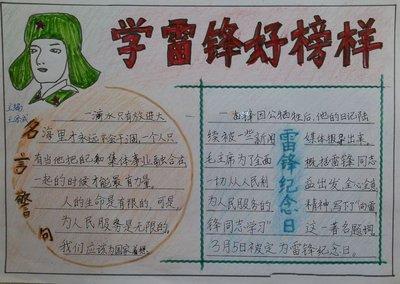 学雷锋好榜样
名言警句
一滴水只有放进大
海里才永远不会干涸,一个人只
有当他把自己和集体事业融合在
一起的时候才能最有力量。
人的生命是有限的,可是,
为人民服务是无限的。
我们应该为国家着想。
雷锋纪念日
雷锋因公牺牲后,他的日记陆
续被一些新闻媒体报导出来。
毛主席为了全面概括雷锋同志
一切从人民利益出发,全心全意
为人民服务的精神,写下"向雷
锋同志学习"这一著名题词,
3月5日被定为雷锋纪念日。